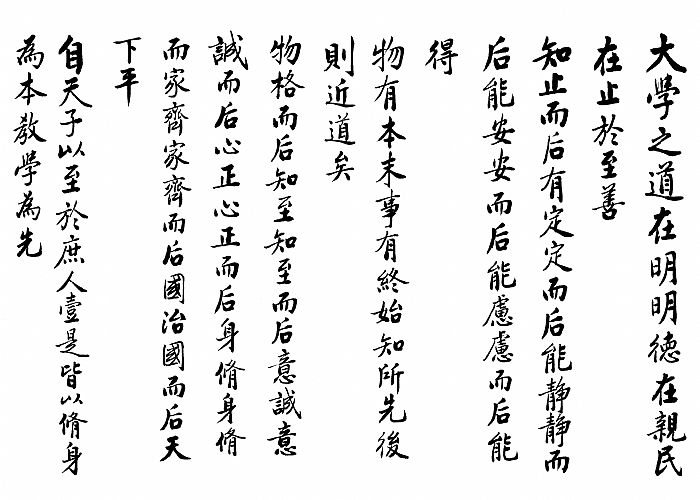 大學之道在明明德在親民
在止於至善
知止而后有定定而后能靜靜而
后能安安而后能慮慮而后能
得
物有本末事有終始知所先後
則近道矣
物格而后知至知至而后意誠意
誠而后心正心正而后身脩身脩
而家齊家齊而后國治國而后天
下平
自天子以至於庶人壹是皆以脩身
為本教學為先